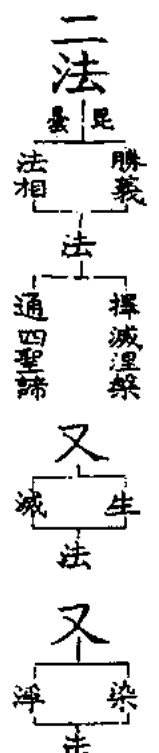 二法
毘曇
勝義
法相
法
擇滅涅槃
通四聖諦
又
生
滅
法
又
染
淨
法